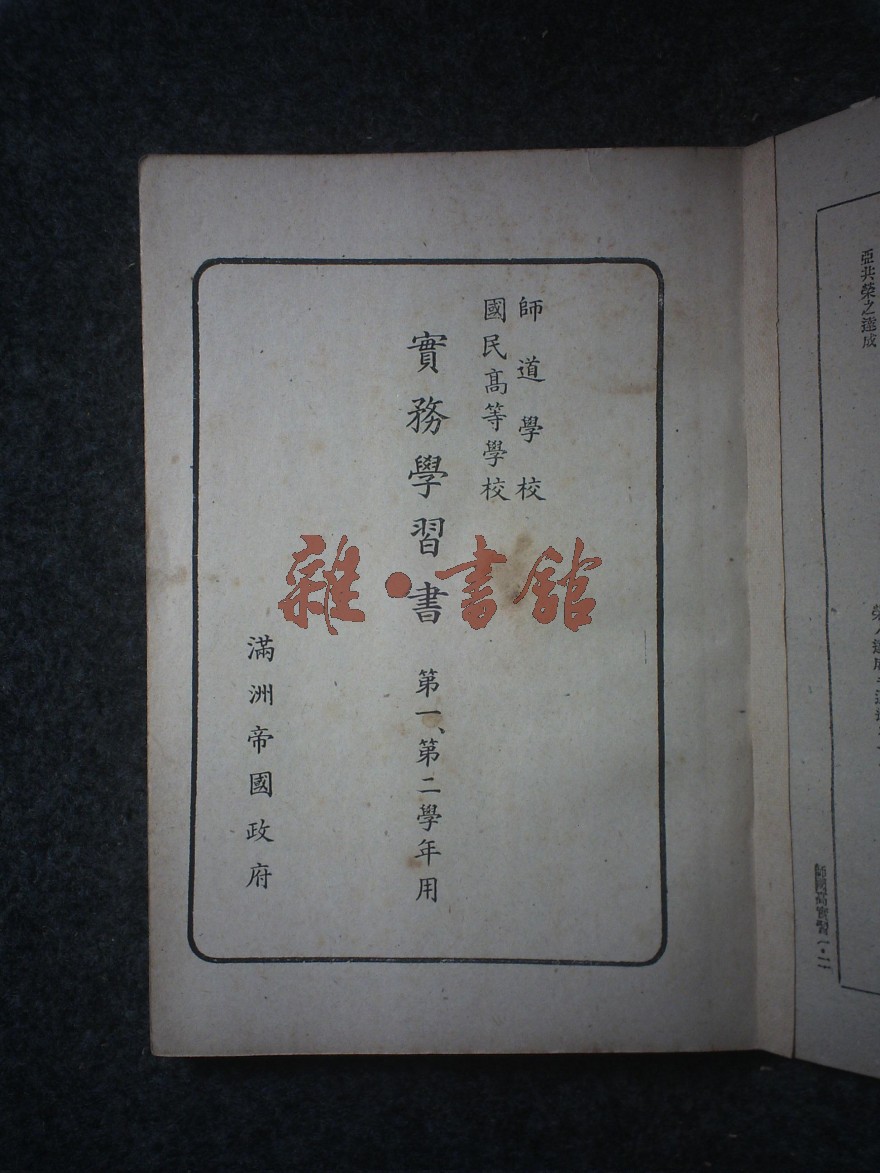 師道學校
國民高等學校
實務學習書 第一、第二學年用
滿洲帝國政府
雜·書館
亞共榮之達成
師國高實習 一・二